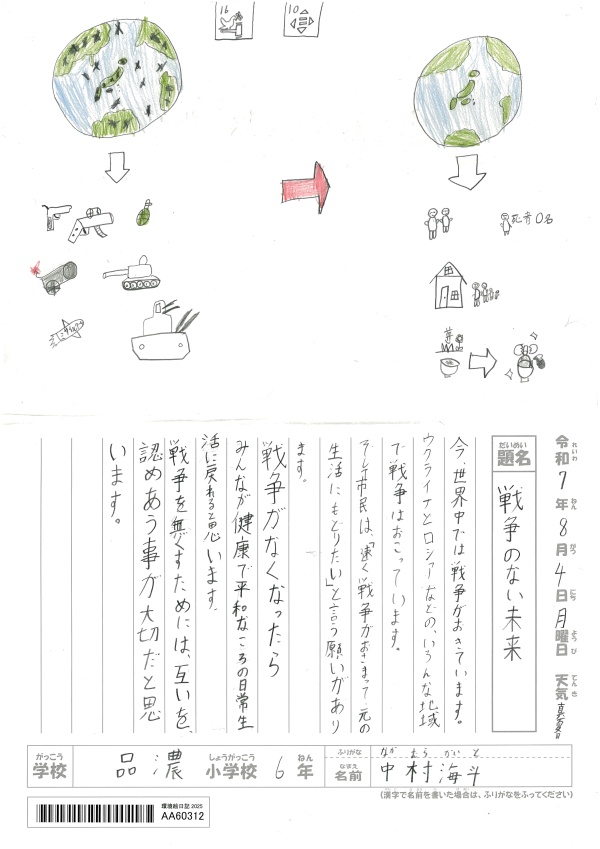 16
10
死者0名
芽
令和7年8月4日月曜日 天気 真夏日
れいわ ねん がつ にち ようび てんき
だいめい
題名
戦争のない未来
今、世界中では戦争がおきています。
ウクライナとロシアーなどの、いろんな地域
で戦争はおこっています。
そして市民は、「速く戦争がおさまって元の
生活にもどりたい」と言う願いがあり
ます。
戦争がなくなったら
みんなが健康で平和なころの日常生
活に戻れると思います。
戦争を無くすためには、互いを、
認めあう事が大切だと思
います。
がっこう
学校
品濃
しょうがっこう
小学校
6
ねん
年
ふりがな
なかむらかいと
なまえ
名前
中村海斗
(漢字で名前を書いた場合は、ふりがなをふってください)
環境絵日記2025
AA60312